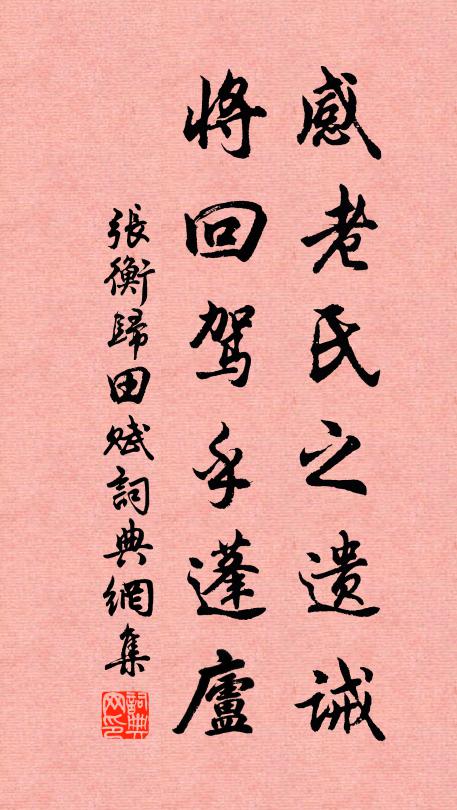 感老氏之遗诫
将回驾乎蓬廬
張衡歸田赋詞典網集
詞典网印